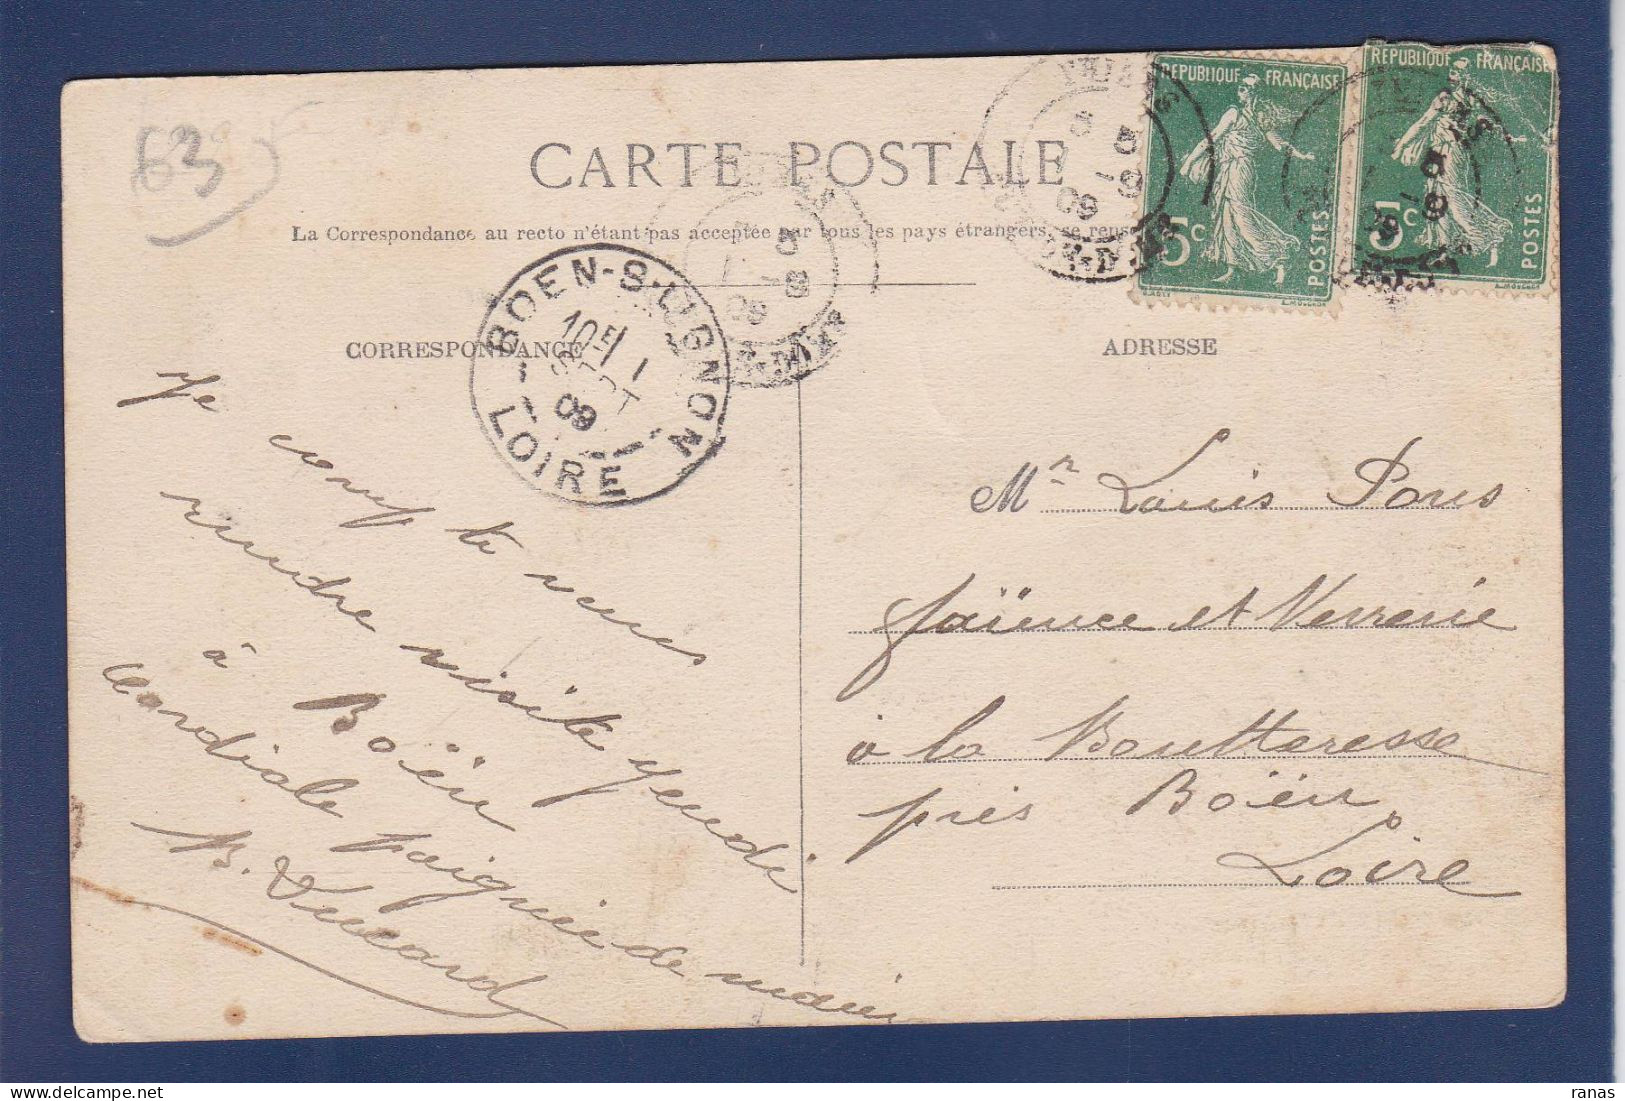 63
CARTE POSTALE
La Correspondance au recto n'étant pas acceptée par tous les pays étrangers, se rens
RÉPUBLIQUE FRANÇAISE
5c
POSTES
RÉPUBLIQUE FRANÇAISE
5c
POSTES
THIERS
PUY-DE-DOME
BOEN-S-LIGNON
10E
1
SEPT
09
LOIRE
CORRESPONDANCE
ADRESSE
Je
compte vous
rendre visite Jeudi
à Boën
cordiale poignée de main
B.
Mr Louis Pons
faïence et Verrerie
à la Bouttaresse
près Boën
Loire
ranas